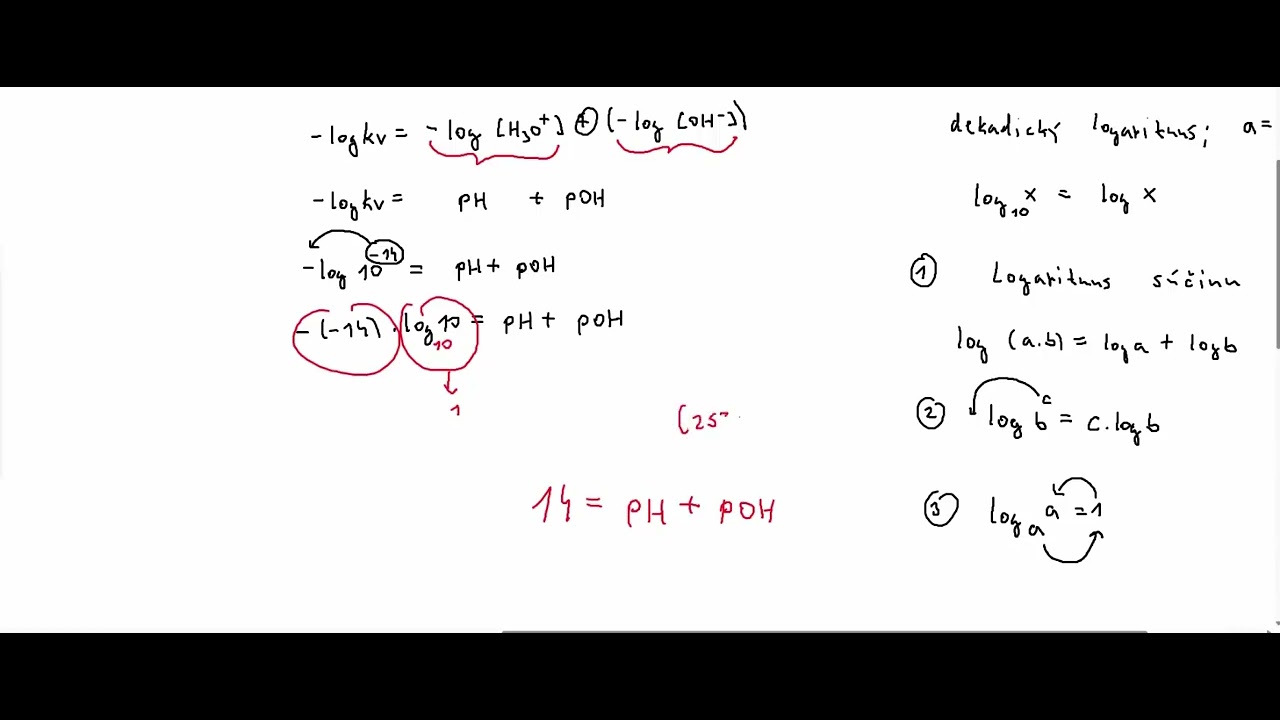 -log kv = -log [H₃O⁺] + (-log [OH⁻])
-log kv = pH + pOH
-log 10⁻¹⁴ = pH + pOH
-(-14) . log₁₀ 10 = pH + pOH
1
(25°
14 = pH + pOH
dekadický logaritmus; a=
log₁₀ x = log x
① Logaritmus súčinu
log (a.b) = log a + log b
② log bᶜ = c.log b
③ logₐ a = 1